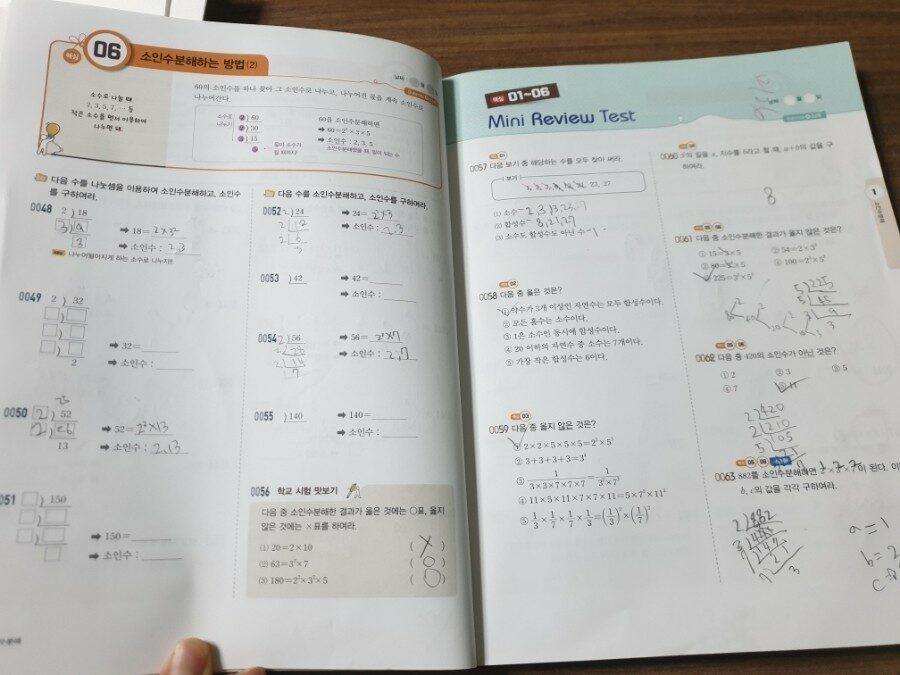 핵심 06 소인수분해하는 방법 (2)
소수로 나눌 때
2, 3, 5, 7, … 등
작은 소수를 먼저 이용하여
나누면 돼.
60의 소인수를 하나 찾아 그 소인수로 나누고, 나누어진 몫을 계속 소인수로
나누어간다.
소수로
나누기
2 ) 60
2 ) 30
3 ) 15
5
몫이 소수가
될 때까지!
60을 소인수분해하면
➡ 60=2²×3×5
➡ 소인수 : 2, 3, 5
다음 수를 나눗셈을 이용하여 소인수분해하고, 소인수
를 구하여라.
0048 2 ) 18
3 ) 9
3
➡ 18=2×3²
➡ 소인수 : 2,3
나누어떨어지게 하는 소수로 나누자!
0049 2 ) 32
2
➡ 32=
➡ 소인수 :
0050 2 ) 52
2 ) 26
13
➡ 52=2²×13
➡ 소인수 : 2,13
051 ) 150
➡ 150=
➡ 소인수 :
다음 수를 소인수분해하고, 소인수를 구하여라.
0052 2 ) 24
2 12
2 6
3
➡ 24=2×3
➡ 소인수 : 2,3
0053 ) 42
➡ 42=
➡ 소인수 :
0054 2 ) 56
2 28
2 14
7
➡ 56=2³×7
➡ 소인수 : 2,7
0055 ) 140
➡ 140=
➡ 소인수 :
0056 학교 시험 맛보기
다음 중 소인수분해한 결과가 옳은 것에는 ○표, 옳지
않은 것에는 ×표를 하여라.
(1) 20=2×10 ( X )
(2) 63=3²×7 ( O )
(3) 180=2²×3²×5 ( O )
핵심 01~06
Mini Review Test
핵심 01
0057 다음 보기 중 해당하는 수를 모두 찾아 써라.
보기
23, 27
(1) 소수
(2) 합성수 8,21,27
(3) 소수도 합성수도 아닌 수 1
핵심 02
0058 다음 중 옳은 것은?
① 약수가 3개 이상인 자연수는 모두 합성수이다.
② 모든 홀수는 소수이다.
③ 1은 소수인 동시에 합성수이다.
④ 20 이하의 자연수 중 소수는 7개이다.
⑤ 가장 작은 합성수는 6이다.
핵심 03
0059 다음 중 옳지 않은 것은?
① 2×2×5×5×5=2²×5³
② 3+3+3+3=3⁴
③ 1/(3×3×7×7×7)=1/(3²×7³)
④ 11×5×11×7×7×11=5×7²×11³
⑤ 1/3×1/7×1/7×1/3=(1/3)²×(1/7)²
0060
a, 지수를 b라고 할 때, a+b의 값을 구
하여라.
8
핵심 05 06
0061 다음 중 소인수분해한 결과가 옳지 않은 것은?
① 15=3×5
② 54=2×3³
④ 100=2²×5²
⑤ 225=3²×5²
5 225
5 45
3 9
3
핵심 05 06
0062 다음 중 420의 소인수가 아닌 것은?
① 2 ② 3 ③ 5
④ 7 ⑤ 11
2 420
2 210
5 105
21
0063 882를 소인수분해하면
이 된다. 이
b, c의 값을 각각 구하여라.
a=1
b=2
1
소인수분해